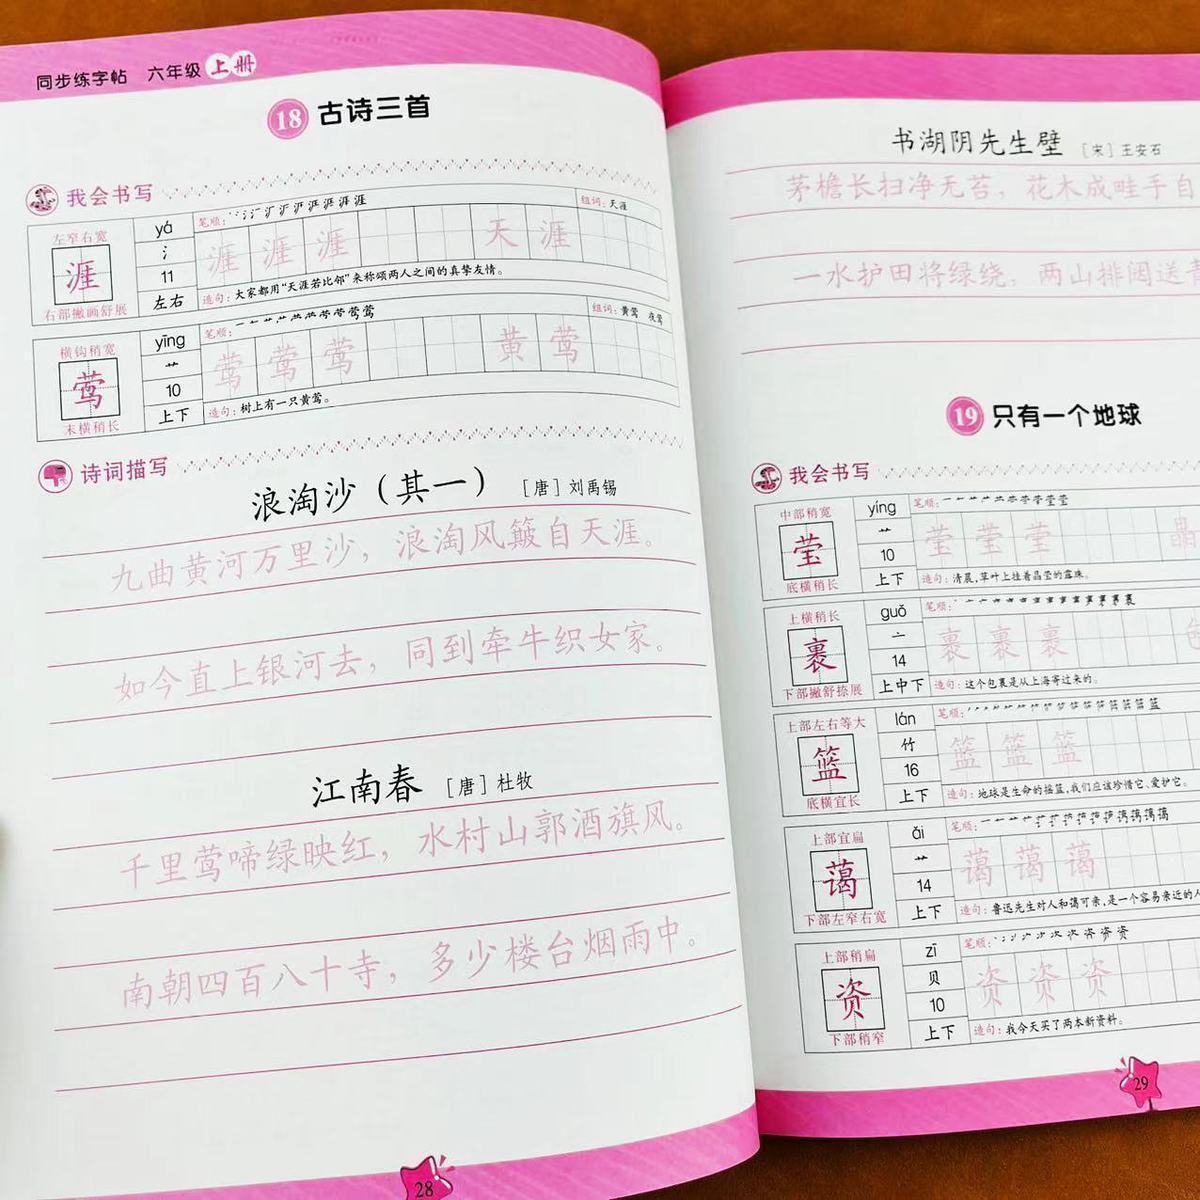 同步练字帖 六年级 上册
18 古诗三首
我会书写
左窄右宽
涯
右部撇画舒展
yá
氵
11
左右
笔顺:
组词:天涯
涯 涯 涯 天 涯
造句:大家都用“天涯若比邻”来称颂两人之间的真挚友情。
横钩稍宽
莺
末横稍长
yīng
艹
10
上下
笔顺:
组词:黄莺 夜莺
莺 莺 莺 黄 莺
造句:树上有一只黄莺。
诗词描写
浪淘沙(其一) [唐]刘禹锡
九曲黄河万里沙，浪淘风簸自天涯。
如今直上银河去，同到牵牛织女家。
江南春 [唐]杜牧
千里莺啼绿映红，水村山郭酒旗风。
南朝四百八十寺，多少楼台烟雨中。
28
书湖阴先生壁 [宋]王安石
茅檐长扫净无苔，花木成畦手自
一水护田将绿绕，两山排闼送青
19 只有一个地球
我会书写
中部稍宽
莹
底横稍长
yíng
艹
10
上下
笔顺:
莹 莹 莹 晶
造句:清晨,草叶上挂着晶莹的露珠。
上横稍长
裹
下部撇舒捺展
guǒ
亠
14
上中下
笔顺:
裹 裹 裹 包
造句:这个包裹是从上海寄过来的。
上部左右等大
篮
底横宜长
lán
竹
16
上下
笔顺:
篮 篮 篮
造句:地球是生命的摇篮,我们应该珍惜它、爱护它。
上部宜扁
蔼
下部左窄右宽
ǎi
艹
14
上下
笔顺:
蔼 蔼 蔼
造句:鲁迅先生对人和蔼可亲,是一个容易亲近的人
上部稍扁
资
下部稍窄
zī
贝
10
上下
笔顺:
资 资 资
造句:我今天买了两本新资料。
29